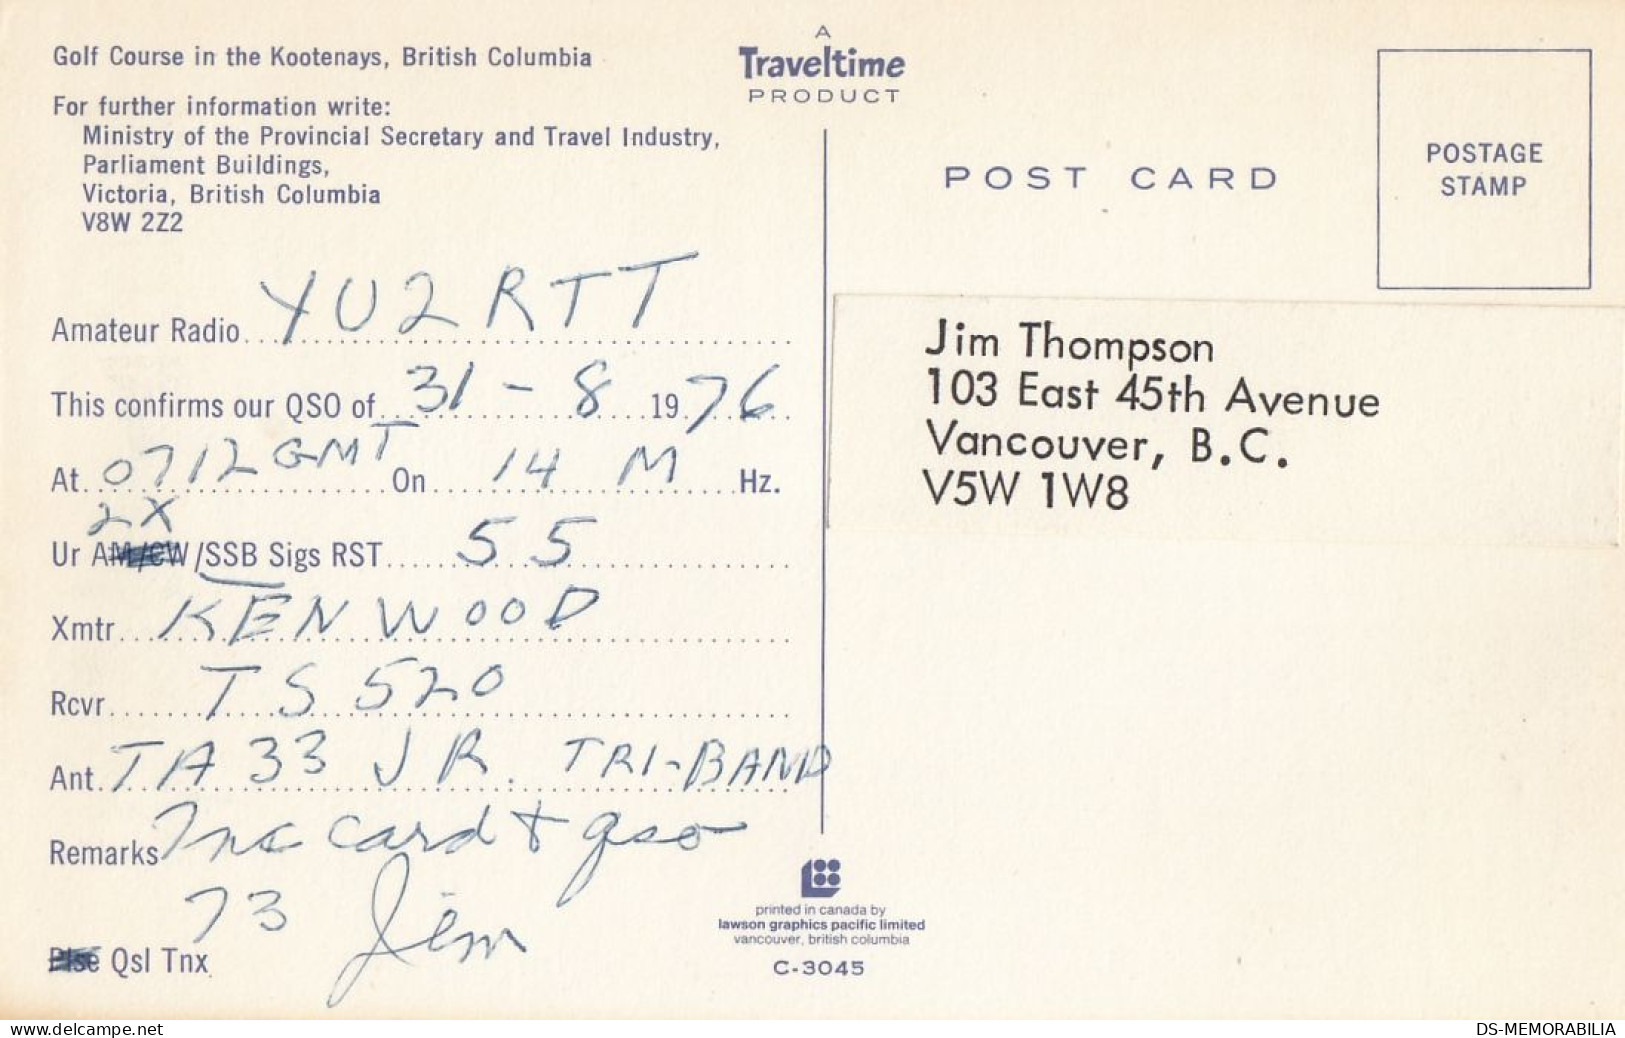 Golf Course in the Kootenays, British Columbia
For further information write:
Ministry of the Provincial Secretary and Travel Industry,
Parliament Buildings,
Victoria, British Columbia
V8W 2Z2
Amateur Radio YU2RTT
This confirms our QSO of 31 - 8 1976
At 0712 GMT On 14 M Hz.
2X
Ur AM/CW/SSB Sigs RST 55
Xmtr KENWOOD
Rcvr TS 520
Ant. TA 33 JR. TRI-BAND
Remarks Tnx card + qso
73 Jim
Plse Qsl Tnx
A
Traveltime
PRODUCT
POST CARD
POSTAGE
STAMP
Jim Thompson
103 East 45th Avenue
Vancouver, B.C.
V5W 1W8
printed in canada by
lawson graphics pacific limited
vancouver, british columbia
C-3045
www.delcampe.net
DS-MEMORABILIA